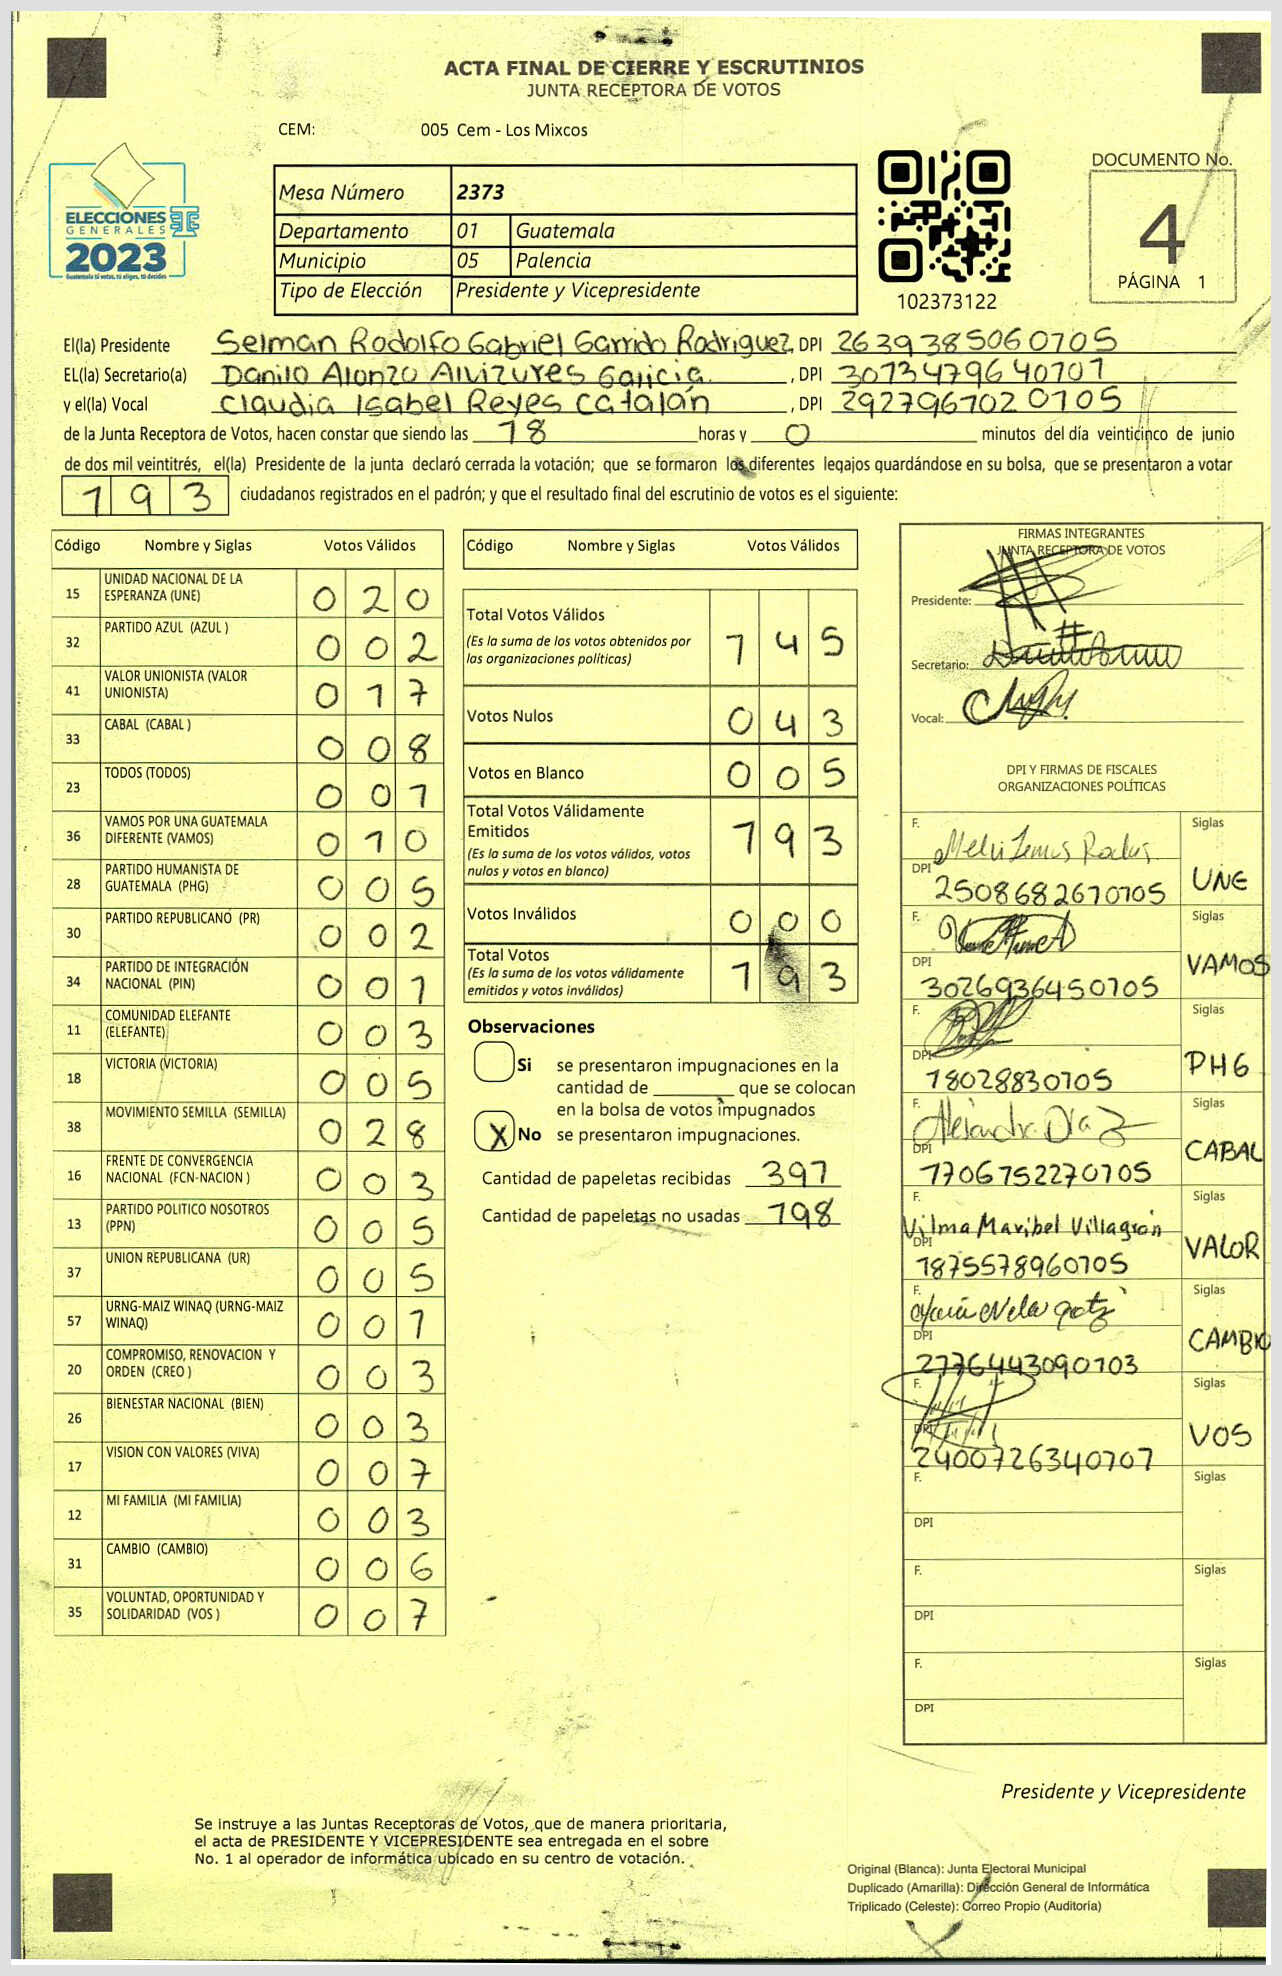 ACTA FINAL DE CIERRE Y ESCRUTINIOS
JUNTA RECEPTORA DE VOTOS
CEM: 005 Cem - Los Mixcos
DOCUMENTO No.
4
PÁGINA 1
ELECCIONES
GENERALES
2023
Guatemala tú votas, tú eliges, tú decides
Mesa Número 2373
Departamento 01 Guatemala
Municipio 05 Palencia
Tipo de Elección Presidente y Vicepresidente
102373122
El(la) Presidente Selman Rodolfo Gabriel Garrido Rodriguez, DPI 2639385060105
EL(la) Secretario(a) Danilo Alonzo Alvizures Galicia , DPI 3013479640101
y el(la) Vocal Claudia Isabel Reyes Catalán , DPI 2927961020105
de la Junta Receptora de Votos, hacen constar que siendo las 18 horas y 0 minutos del día veinticinco de junio
de dos mil veintitrés, el(la) Presidente de la junta declaró cerrada la votación; que se formaron los diferentes legajos guardándose en su bolsa, que se presentaron a votar
193 ciudadanos registrados en el padrón; y que el resultado final del escrutinio de votos es el siguiente:
Código Nombre y Siglas Votos Válidos
15 UNIDAD NACIONAL DE LA ESPERANZA (UNE) 020
32 PARTIDO AZUL (AZUL ) 002
41 VALOR UNIONISTA (VALOR UNIONISTA) 017
33 CABAL (CABAL ) 008
23 TODOS (TODOS) 001
36 VAMOS POR UNA GUATEMALA DIFERENTE (VAMOS) 010
28 PARTIDO HUMANISTA DE GUATEMALA (PHG) 005
30 PARTIDO REPUBLICANO (PR) 002
34 PARTIDO DE INTEGRACIÓN NACIONAL (PIN) 001
11 COMUNIDAD ELEFANTE (ELEFANTE) 003
18 VICTORIA (VICTORIA) 005
38 MOVIMIENTO SEMILLA (SEMILLA) 028
16 FRENTE DE CONVERGENCIA NACIONAL (FCN-NACION ) 003
13 PARTIDO POLITICO NOSOTROS (PPN) 005
37 UNION REPUBLICANA (UR) 005
57 URNG-MAIZ WINAQ (URNG-MAIZ WINAQ) 001
20 COMPROMISO, RENOVACION Y ORDEN (CREO ) 003
26 BIENESTAR NACIONAL (BIEN) 003
17 VISION CON VALORES (VIVA) 007
12 MI FAMILIA (MI FAMILIA) 003
31 CAMBIO (CAMBIO) 006
35 VOLUNTAD, OPORTUNIDAD Y SOLIDARIDAD (VOS ) 007
Código Nombre y Siglas Votos Válidos
Total Votos Válidos 145
(Es la suma de los votos obtenidos por
las organizaciones políticas)
Votos Nulos 043
Votos en Blanco 005
Total Votos Válidamente
Emitidos 193
(Es la suma de los votos válidos, votos
nulos y votos en blanco)
Votos Inválidos 000
Total Votos 193
(Es la suma de los votos válidamente
emitidos y votos inválidos)
Observaciones
Si se presentaron impugnaciones en la
cantidad de ________ que se colocan
en la bolsa de votos impugnados
X No se presentaron impugnaciones.
Cantidad de papeletas recibidas 391
Cantidad de papeletas no usadas 198
FIRMAS INTEGRANTES
JUNTA RECEPTORA DE VOTOS
Presidente:
Secretario:
Vocal:
DPI Y FIRMAS DE FISCALES
ORGANIZACIONES POLÍTICAS
F. Siglas
DPI 2508682610105 UNE
F. Siglas
DPI 3026936450105 VAMOS
F. Siglas
DPI 18028830105 PHG
F. Alejandra Díaz Siglas
DPI 1706152270105 CABAL
F. Vilma Maribel Villagrán Siglas
DPI 1875578960105 VALOR
F. Siglas
DPI 2776443090103 CAMBIO
F. Siglas
DPI 2400126340101 VOS
F. Siglas
DPI
F. Siglas
DPI
F. Siglas
DPI
Presidente y Vicepresidente
Se instruye a las Juntas Receptoras de Votos, que de manera prioritaria,
el acta de PRESIDENTE Y VICEPRESIDENTE sea entregada en el sobre
No. 1 al operador de informática ubicado en su centro de votación.
Original (Blanca): Junta Electoral Municipal
Duplicado (Amarilla): Dirección General de Informática
Triplicado (Celeste): Correo Propio (Auditoría)